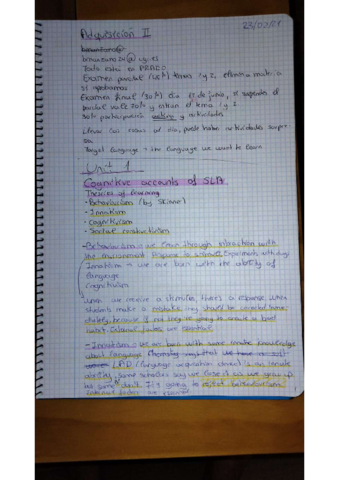 23/02/21
Adquisición II
Todo está en PRADO
Examen parcial temas 1 y 2, elimina materia
si aprobamos
Examen final día de junio, si suspendes el
parcial vale 70% y entran el tema 1 y 2
participación activa y actividades
Llevar las cosas al día, puede haber actividades sorpre
sa
Target language → the language we want to learn
Unit 1
Cognitive accounts of SLA
Theories of learning
· Behaviourism (by Skinner)
· Innatism
· Cognitivism
· Social constructivism
- Behaviourism: we learn through interaction with
the environment. Response to stimuli. Experiments with dogs
Innatism → we are born with the ability of
language
Cognitivism
when we receive a stimulus, there's a response. When
students make a mistake they should be corrected imme
diately because if not they're going to create a bad
habit. External factors are
- Innatism: we are born with some innate knowledge
about language. Chomsky
LAD (Language acquisition device) is an innate
ability, some scholars say we lose it as we grow up
but some don't. It's going to reject behaviourism.
Internal factors are